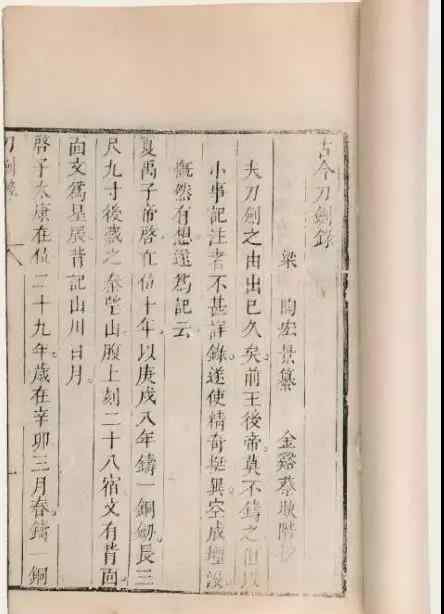 古今刀劍錄
梁 陶宏景纂 金谿蔡
夫刀劍之由出已久矣。前王後帝莫不鑄之但以
小事記注者不甚詳錄。遂使精奇挺異。空成堙沒
慨然有想遂爲記云
夏禹子帝啓在位十年。以庚戌八年鑄一銅劍。長三
尺九寸後藏之秦望山腹上刻二十八宿文有背面
面文爲星辰背記山川日月。
啓子太康在位二十九年。歲在辛卯三月春鑄一銅
刀劍錄 一